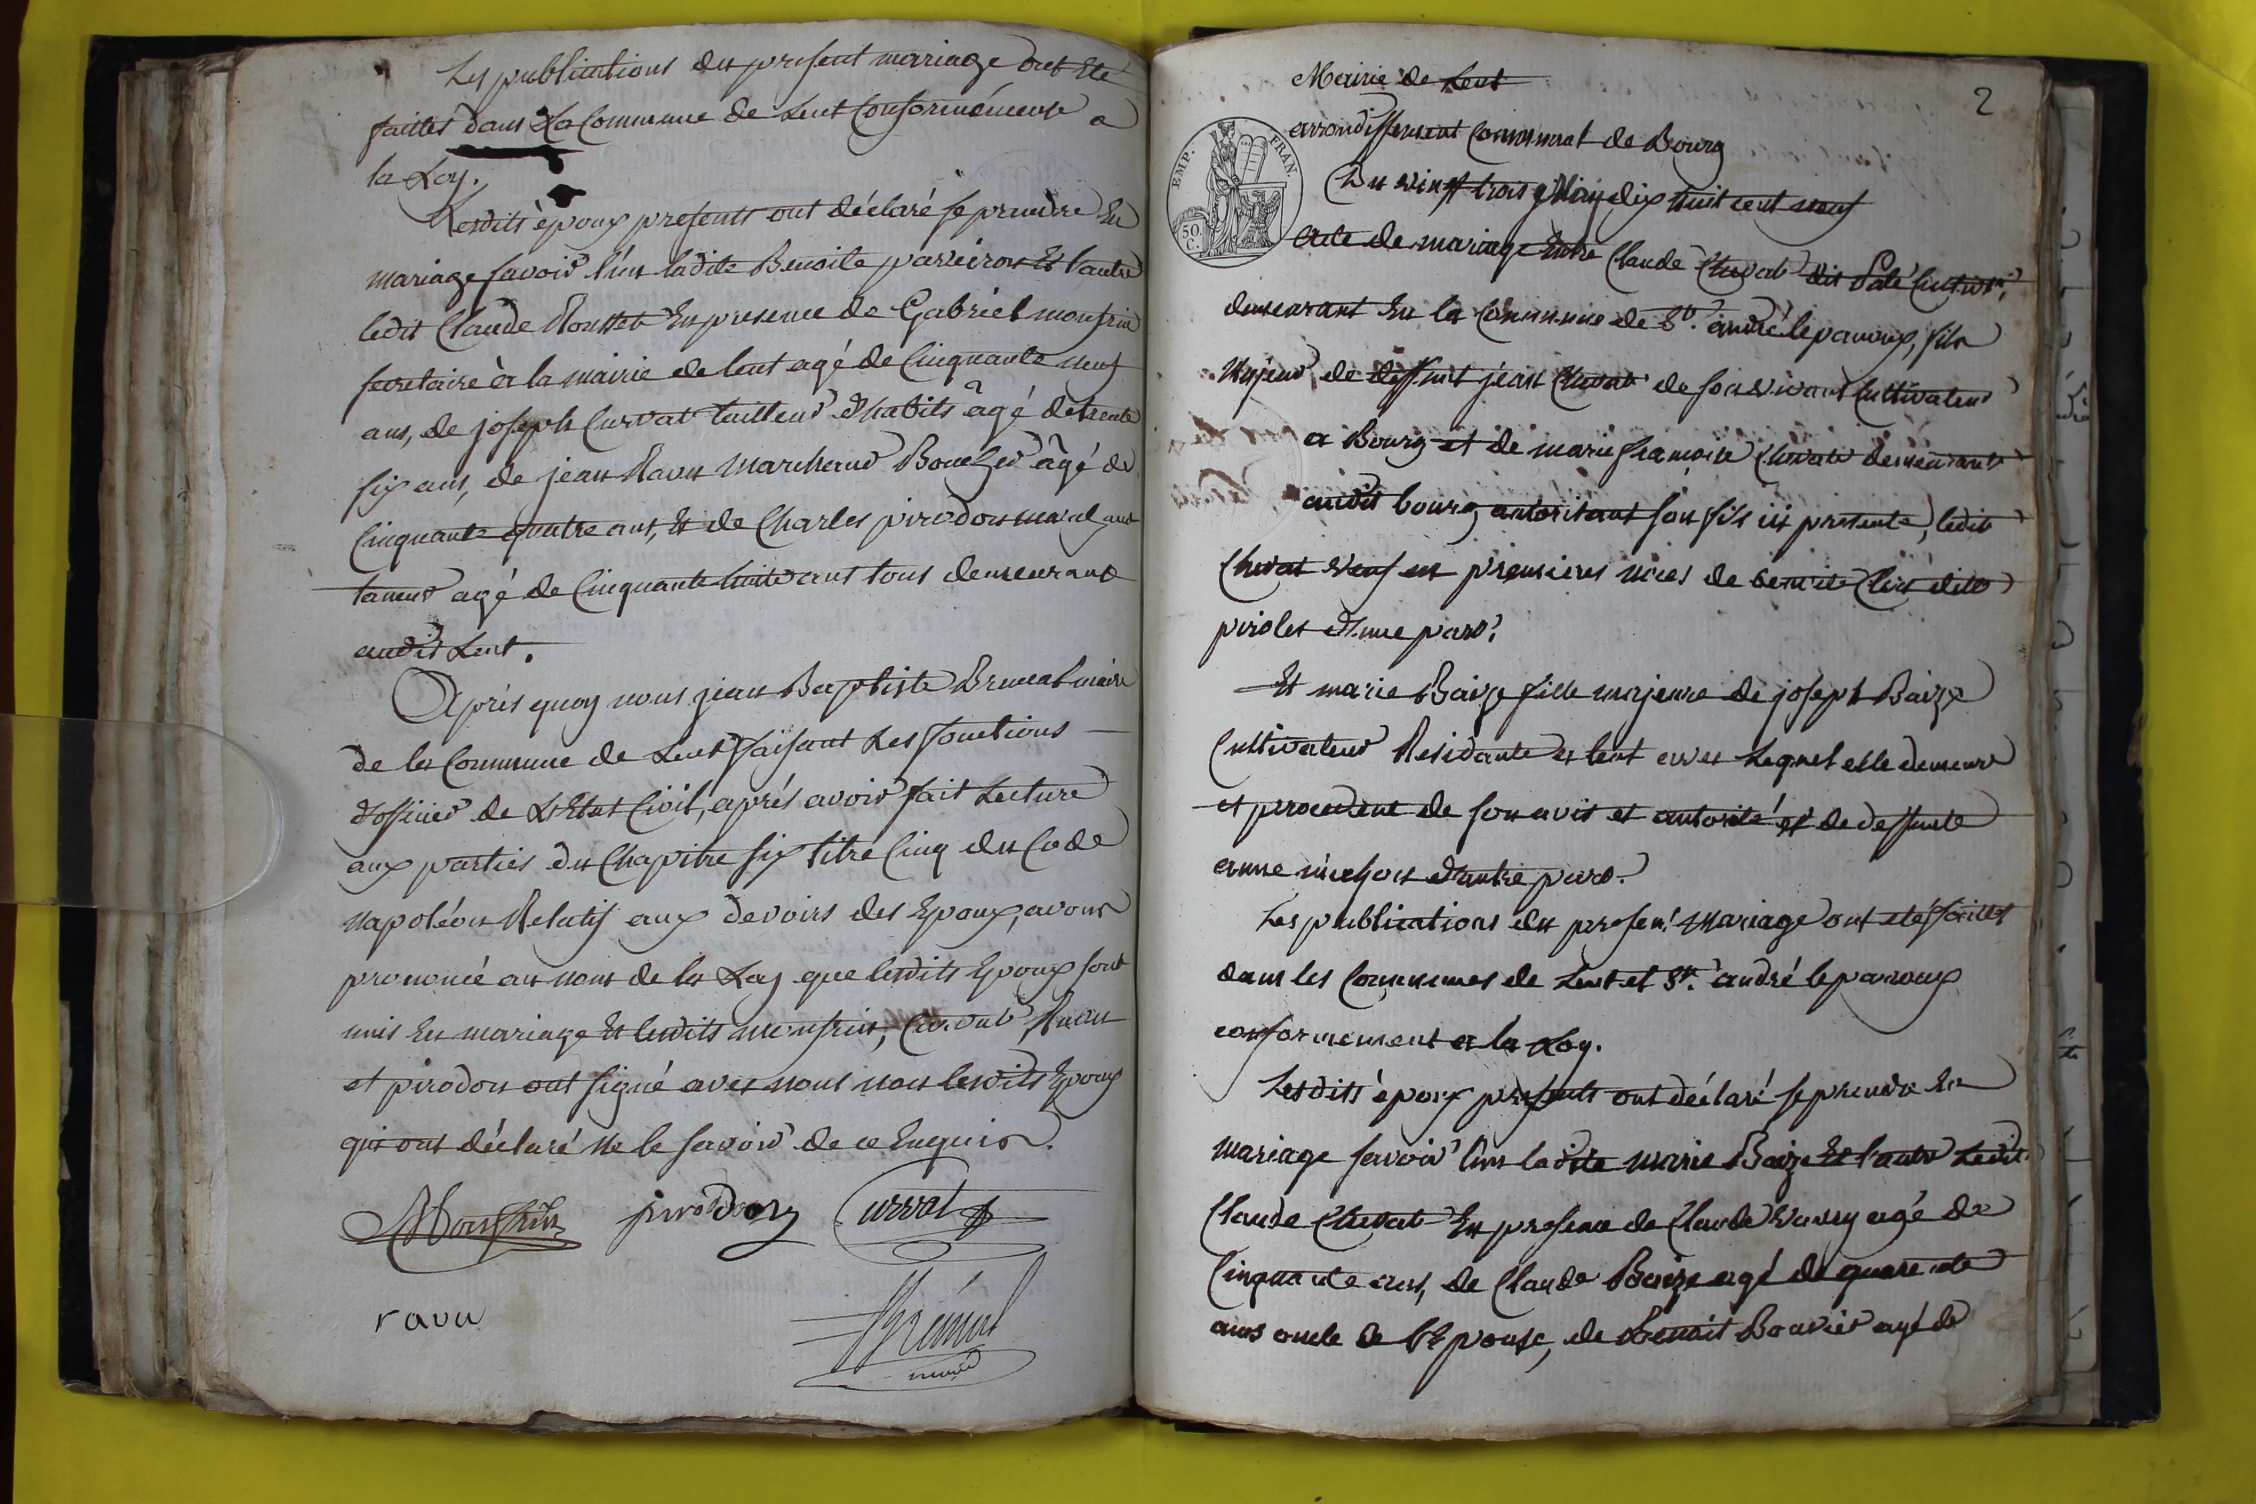 Les publications du present mariage ont été
faittes dans La Commune de Lent Conformément a
la Loy.
Lesdits époux presents ont déclaré se prendre En
mariage savoir l'un ladite Benoite Et l'autre
ledit Claude Rousset En presence de Gabriel monfrin
secretaire à la mairie de lent agé de Cinquante neuf
ans, de joseph Curvat tailleur d'habits âgé de trente
six ans, de jean Ravu Marchand Boucher âgé de
Cinquante quatre ans, Et de Charles pirodon marchand
taneur agé de Cinquante huit ans tous demeurant
audit Lent.
Après quoy nous jean Baptiste maire
de la Commune de Lent faisant Les fonctions
d'officier de L'Etat Civil, aprés avoir fait Lecture
aux parties du Chapitre six titre Cinq du Code
napoléon Relatif aux devoirs des Epoux, avons
prononcé au nom de la Loy que lesdits Epoux sont
unis En mariage Et lesdits monfrin, Curvat, Ravu
et pirodon ont signé avec nous non lesdits Epoux
qui ont déclaré ne le savoir de ce Enquis.
Monfrin pirodon Curvat
ravu
maire
2
Mairie de Lent
arrondissement Communal de Bourg
EMP. FRAN.
50. C.
Du vingt trois May dix huit cent neuf
Acte de mariage Entre Claude Chevat dit
demeurant En la Commune de St. andré le panoux, fils
Majeur de deffunt jean Chevat de son vivant Cultivateur
a Bourg et de marie françoise demeurant
audit bourg autorisant son fils ici presente, ledit
Chevat veuf en premieres noces de benoite dite
piroles d'une part.
Et marie Baize fille majeure de joseph Baize
Cultivateur Residante a lent avec Lequel elle demeure
et procedant de son avis et autorité et de deffunte
anne michon d'autre part.
Les publications du present mariage ont été faittes
dans les Communes de Lent et St. andré le panoux
conformement a la Loy.
Lesdits époux presents ont déclaré se prendre En
mariage savoir l'un ladite marie Baize Et l'autre Ledit
Claude Chevat En presence de Claude agé de
Cinquante ans, de Claude Baize agé de quarente
ans oncle de l'Epouse, de Benoit Bouvier agé de